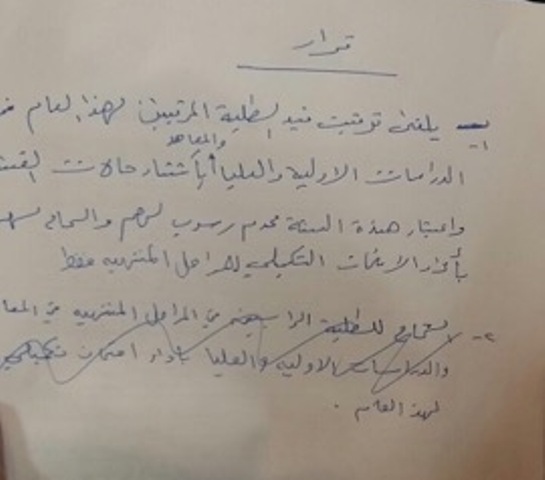 قرار
١- يلغى ترقين قيد الطلبة المرقنين لهذا العام في
والمعاهد
الدراسات الاولية والعليا بأستثناء حالات الغش
واعتبار هذه السنة عدم رسوب لهم والسماح لهم
بأداء الامتحان التكميلي للمراحل المنتهيه فقط
٢- السماح للطلبة الراسبين في المراحل المنتهيه في
والدراسات الاوليه والعليا بأداء امتحان تكميلي
لهذا العام .